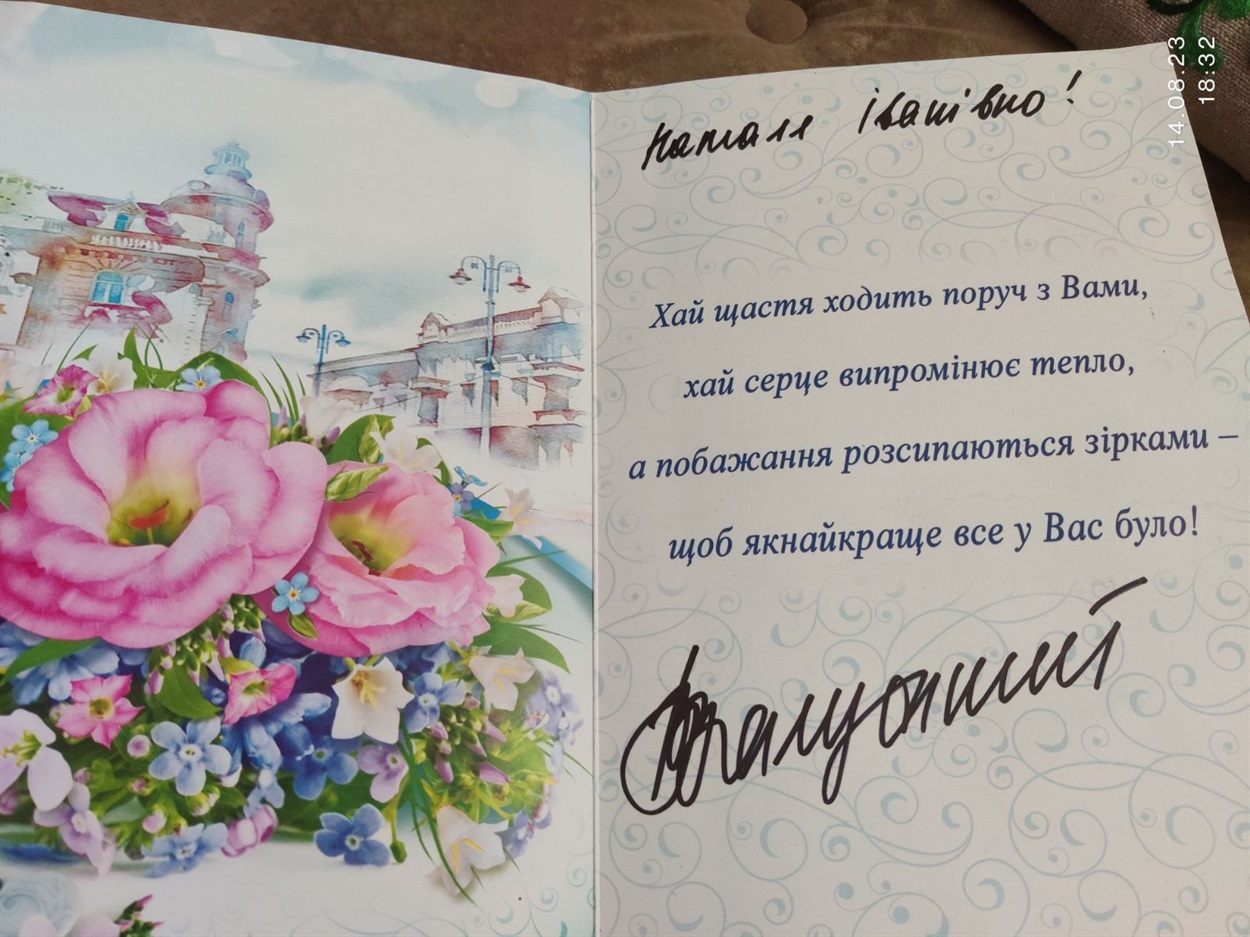 Наталя Іванівно!
Хай щастя ходить поруч з Вами,
хай серце випромінює тепло,
а побажання розсипаються зірками –
щоб якнайкраще все у Вас було!
14.08.23
18:32